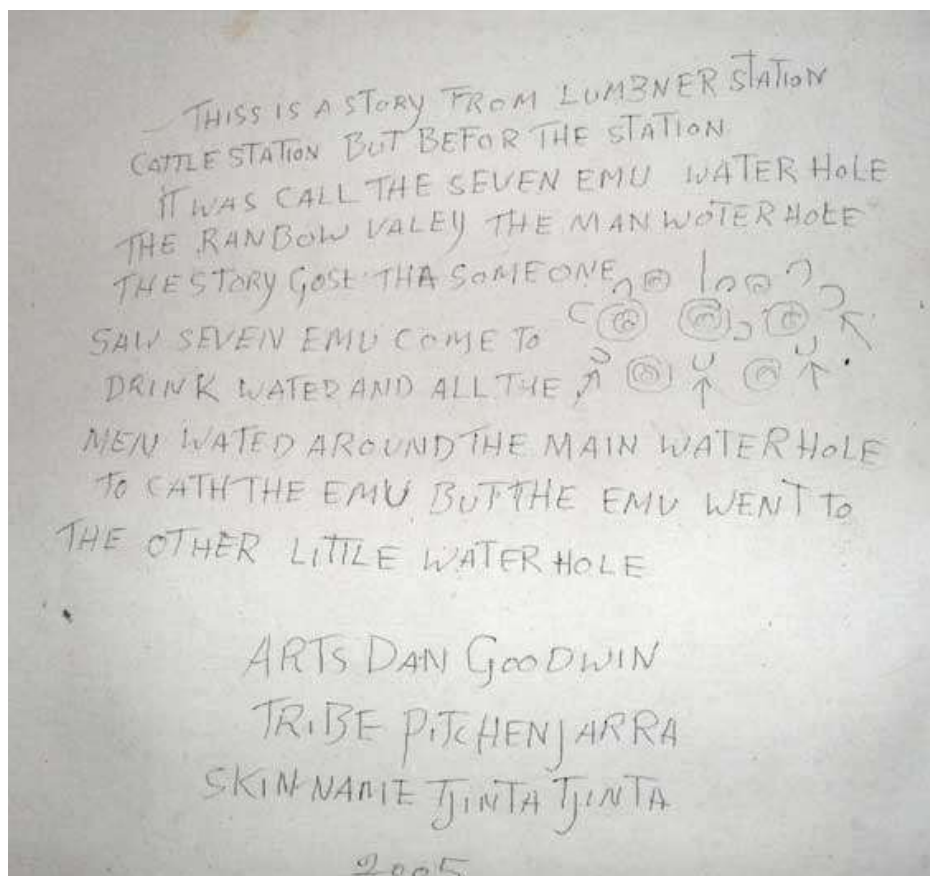 THISS IS A STORY FROM LUMBNER STATION
CATTLE STATION BUT BEFOR THE STATION
IT WAS CALL THE SEVEN EMU WATER HOLE
THE RANBOW VALEY THE MAN WOTER HOLE
THE STORY GOST THA SOMEONE
SAW SEVEN EMU COME TO
DRINK WATED AND ALL THE
MEN WATED AROUND THE MAIN WATER HOLE
TO CATH THE EMU BUT THE EMU WENT TO
THE OTHER LITTLE WATER HOLE
ARTS DAN GOODWIN
TRIBE PITCHENJARRA
SKIN NAME TJINTA TJINTA
2005